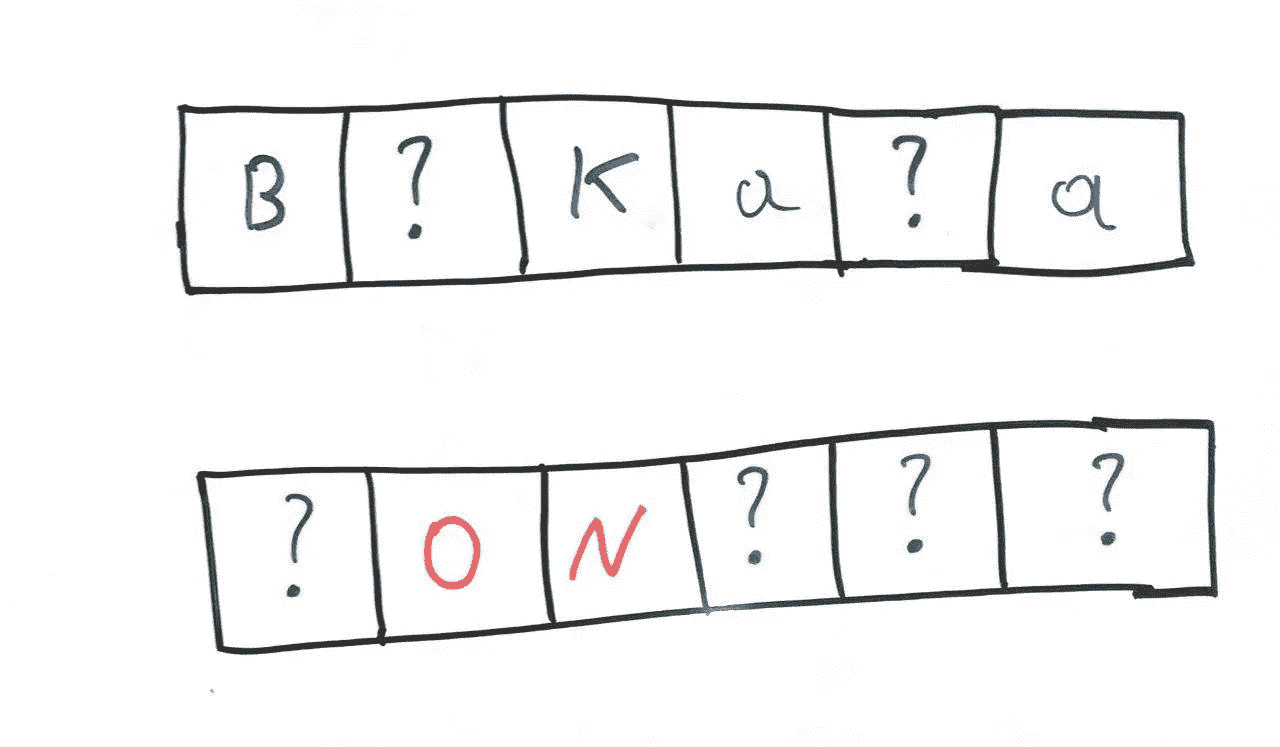 B ? K a ? a
? O N ? ? ?